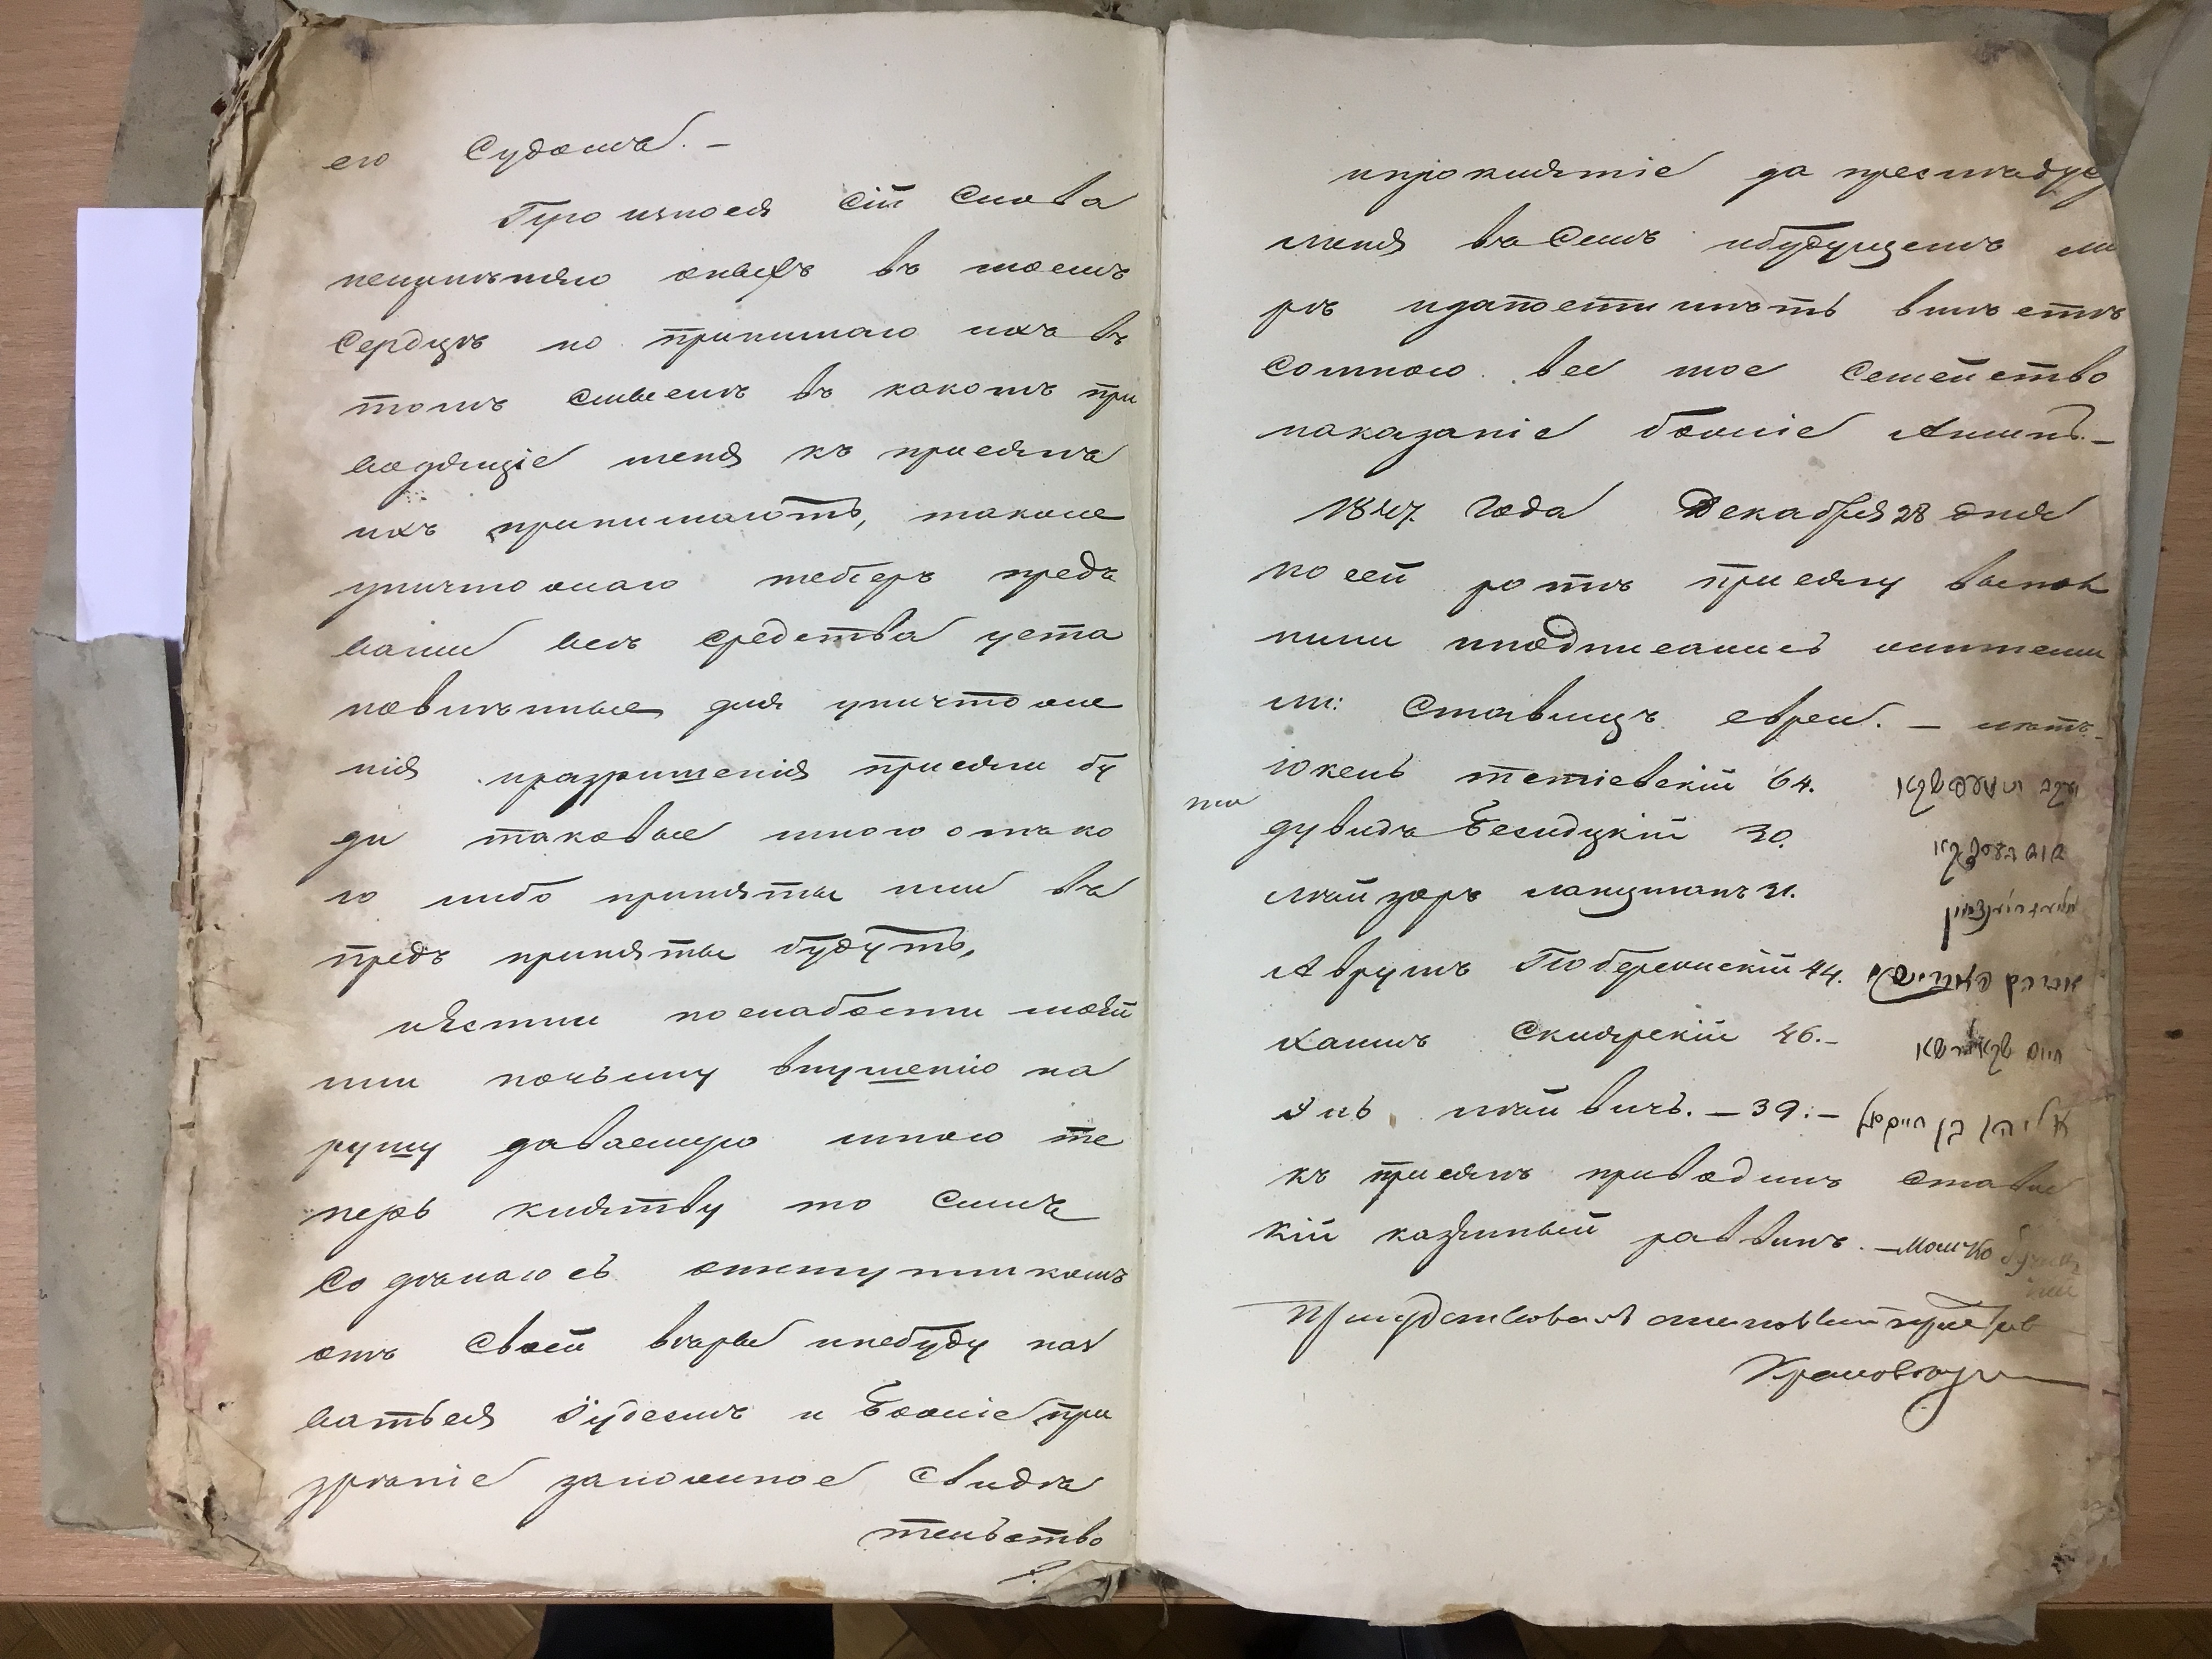 его Судомъ. –
Произнося сіи слова
неизменяю оныхъ въ моемъ
Сердце но принимаю ихъ въ
томъ смысле въ какомъ при
водящіе меня къ присяге
ихъ принимаютъ, такоже
уничтожаю теперь предъ
вами все средства уста
новленные для уничтоже
нія празрешенія присяги бу
ди таковые мною отъ ко
го либо приняты или въ
предъ приняты будутъ,
иЕстли по слабости моей
или почьему внушенію на
рушу даваемую мною те
перь клятву то симъ
соделаюсь отступникомъ
отъ своей веры инебуду наз
ватся Іудеемъ и Божіе при
зреніе заложное свиде
тельство
ипроклятіе да преследуе
меня въ семъ ибудущемъ ми
ре идапостигнетъ вместе
сомною все мое семейство
наказаніе Божіе Аминь. –
1847. Года Декабря 28 дня
по сей роте присягу выпол
нили иподписались жители
м: Ставищъ евреи. – летъ.
Юкель тетіевскій 64.
дувидъ Белидцкій 30.
Лейзоръ ланцманъ 31.
Аврумъ Побережскій 44.
Хаимъ Склярскій 46. –
Эль, Лейвичъ. – 39: –
אליהו בן
къ присяге приводилъ Ставис
кій казенный раввинъ. – Мошко